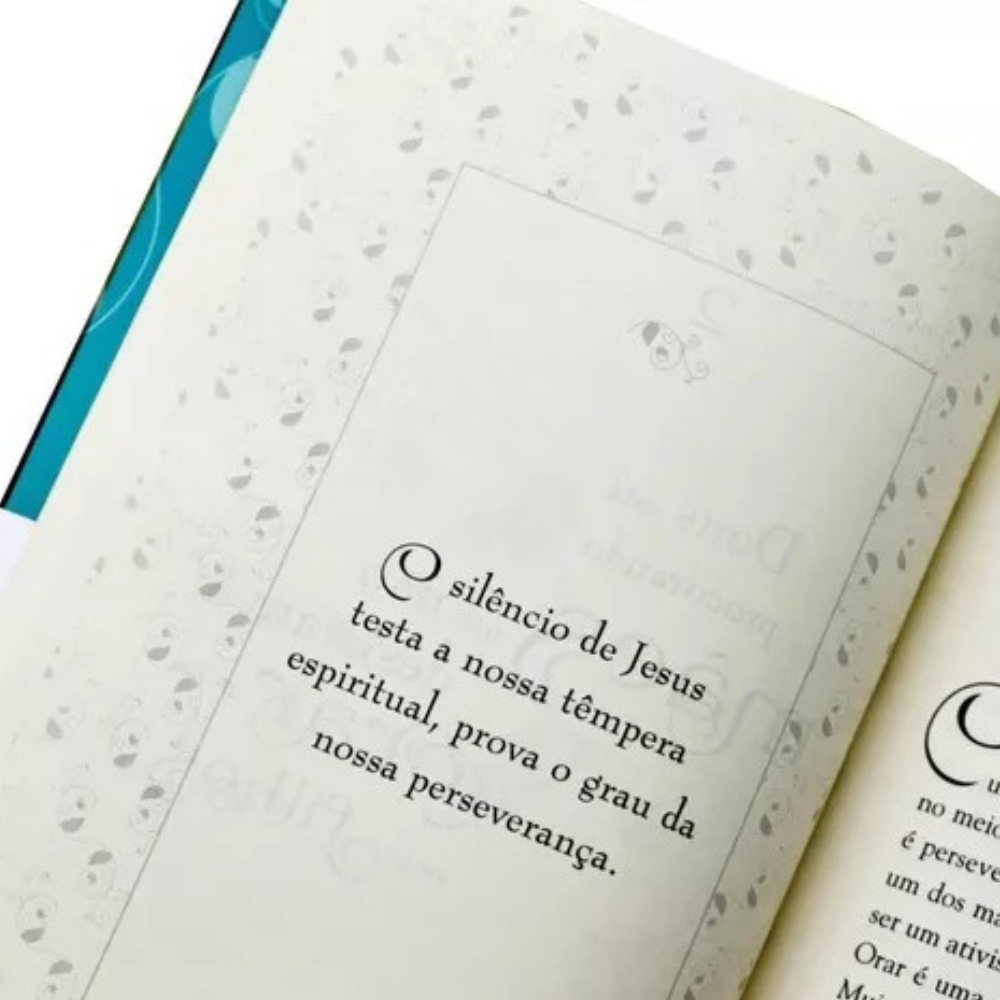 O silêncio de Jesus
testa a nossa têmpera
espiritual, prova o grau da
nossa perseverança.
no meio
é
um dos
ser um
Orar é uma